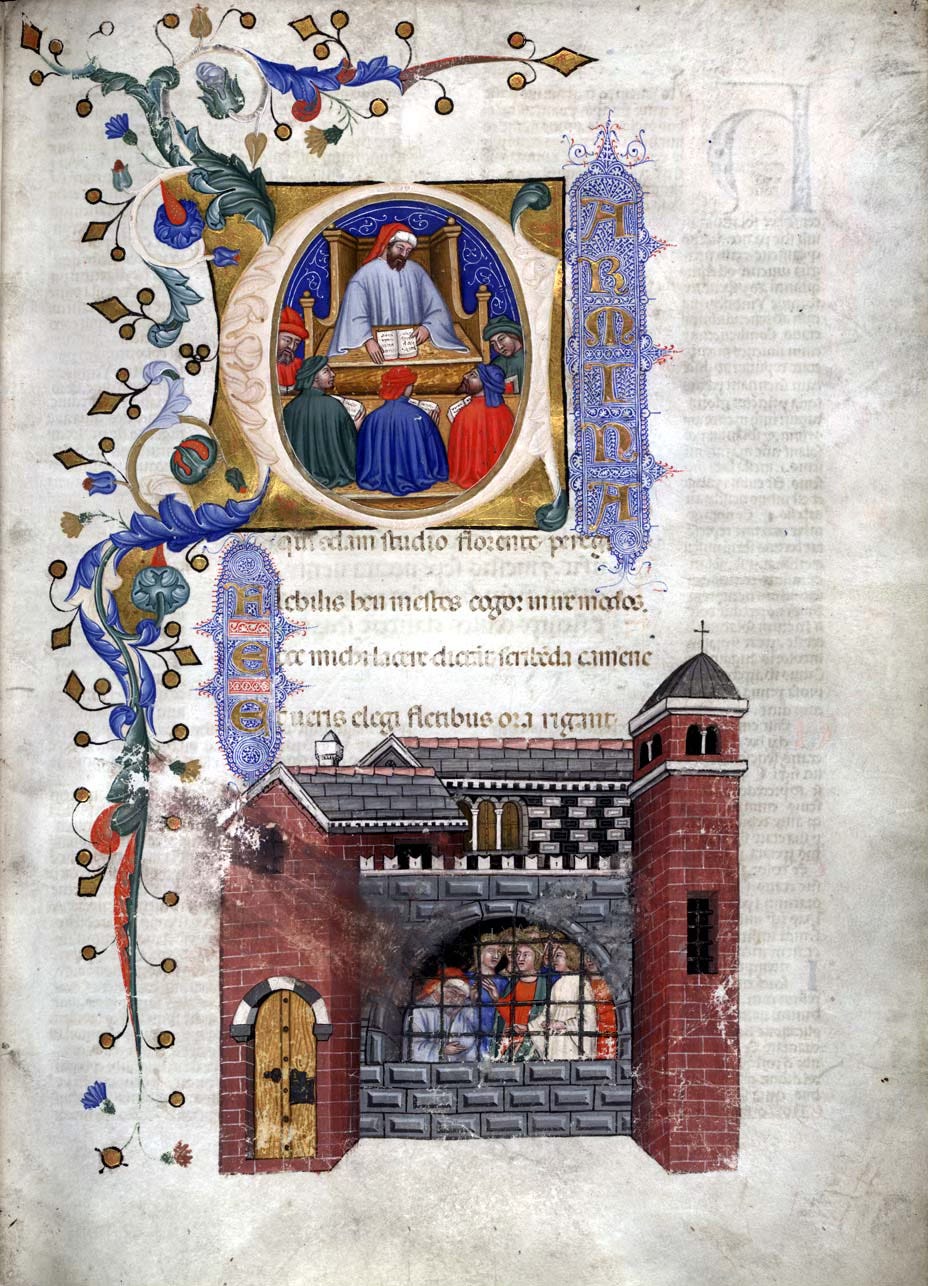 4
CARMINA
qui qdam studio florente peregi
Flebilis heu mestos cogor inire modos.
Ecce michi lacere dictāt scribēda camene
Et ueris elegi fletibus ora rigant